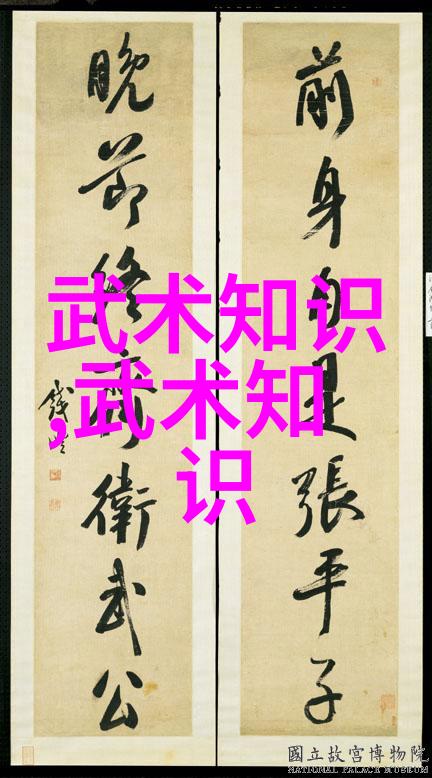 前身自是張平子
晚節終齊衛武公
錢
武术知识
,武术知
识
國立故宮博物院
NATIONAL PALACE MUSEUM